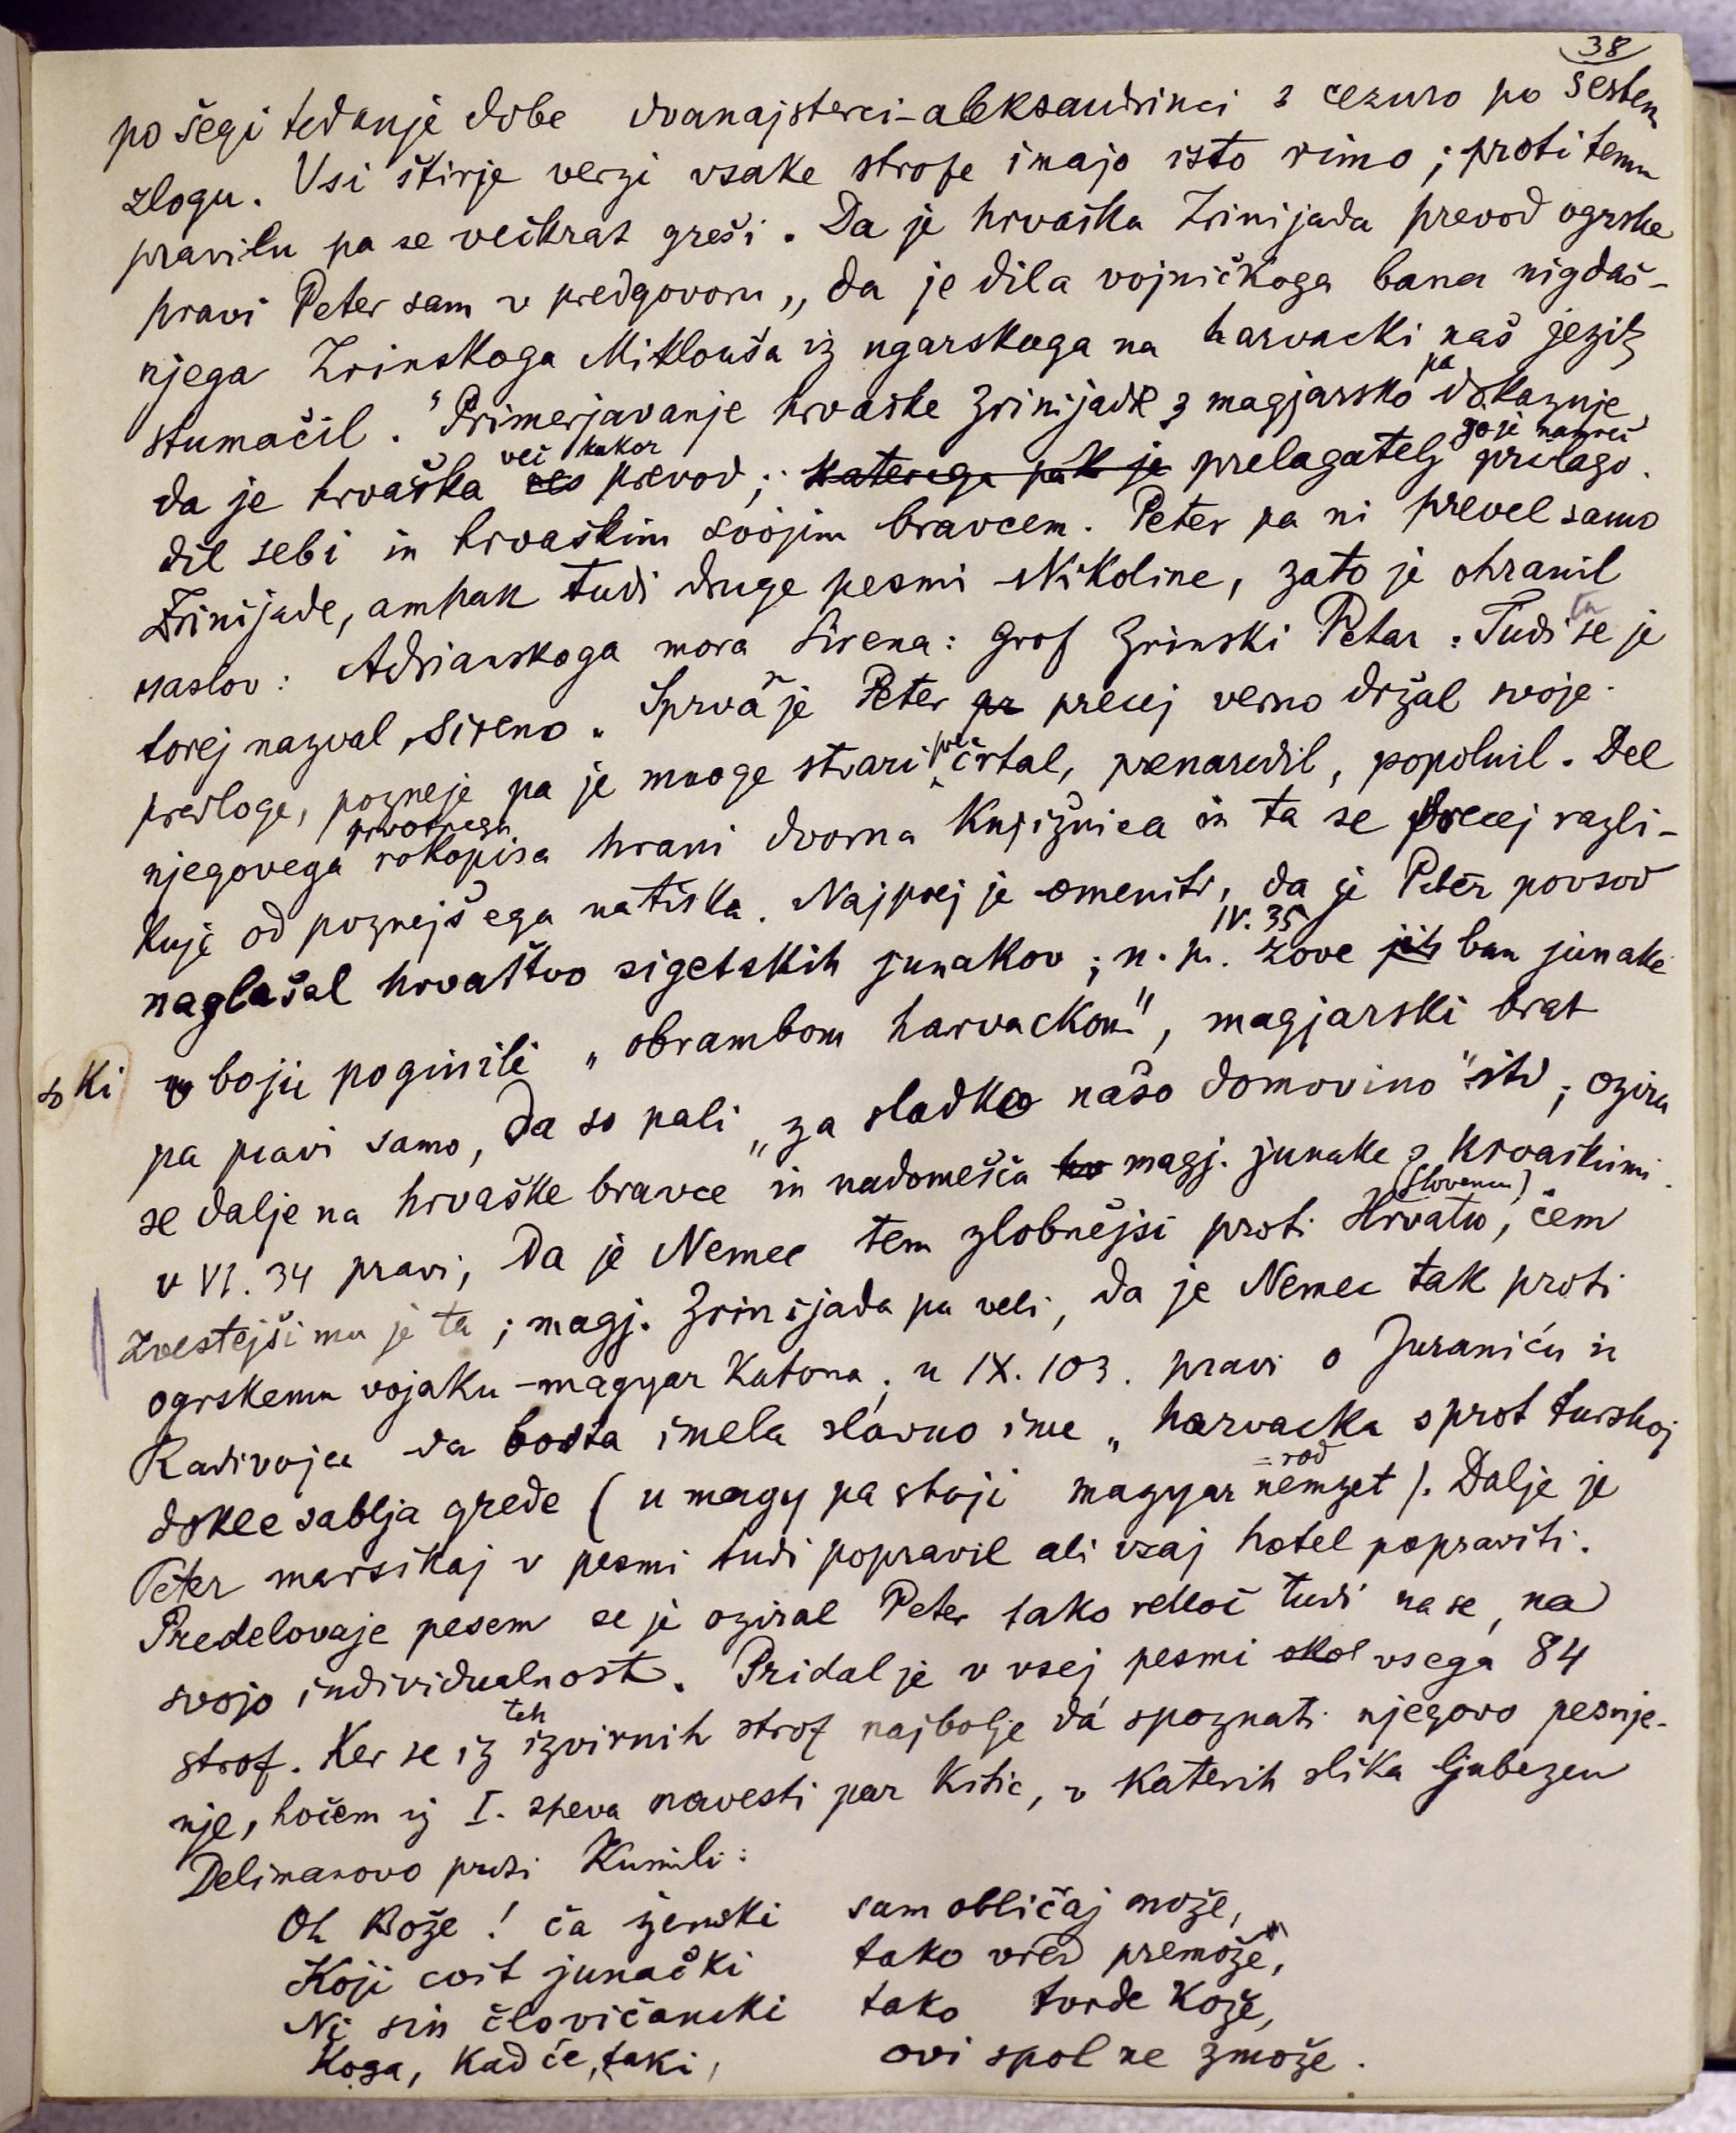 38
po šegi tedanje dobe dvanajsterci-aleksandrinci z cezuro po šestem
zlogu. Vsi štirje verzi vsake strofe imajo isto rimo; proti temu
pravilu pa se večkrat greši. Da je hrvaška Zrinijada prevod ogrske
pravi Peter sam v predgovoru „da je dila vojničkoga bana nigdaš-
njega Zrinskoga Miklouša iz ugarskoga na harvacki naš jezik
stumačil." Primerjavanje hrvaške Zrinijade z magjarsko pa dokazuje,
da je hrvaška res več kakor prevod; katerega pak je prelagatelj ga je namreč prilago-
dil sebi in hrvaškim svojim bravcem. Peter pa ni prevel samo
Zrinijade, ampak tudi druge pesmi Nikoline, zato je ohranil
naslov: Adrianskoga mora Sirena: Grof Zrinski Petar: Tudi ta se je
torej nazval „Sireno". Sprva se je Peter pr precej verno držal svoje
predloge, pozneje pa je mnoge stvari pre črtal, prenaredil, popolnil. Del
njegovega prvotnega rokopisa hrani dvorna knjižnica in ta se precej razli-
kuje od poznejšega natiska. Najprej je omeniti, da je Peter povsod
naglašal hrvaštvo sigetskih junakov; n. pr. IV. 35 zove jih ban junake
ki so v boju poginili „obrambom harvackom", magjarski brat
pa pravi samo, da so pali „za sladko našo domovino" itd; ozira
se dalje na hrvaške bravce in nadomešča hr magj. junake z hrvaškimi.
v VI. 34 pravi, da je Nemec tem zlobnejši proti Hrvatu (Slovencu), čem
zvestejši mu je ta; magj. Zrinijada pa veli, da je Nemec tak proti
ogrskemu vojaku - magyar katona; u IX. 103. pravi o Juraniću in
Radivoju da bosta imela slavno ime „harvacka sprot turskoj
dokle sablja grede (u magy pa stoji magyar nemzet = rod). Dalje je
Peter marsikaj v pesmi tudi popravil ali vsaj hotel popraviti.
Predelovaje pesem se je oziral Peter tako rekoč tudi na se, na
svojo individualnost. Pridal je v vsej pesmi okol vsega 84
strof. Ker se iz teh izvirnih strof najbolje dá spoznati njegovo pesnje-
nje, hočem iz I. speva navesti par kitic, v katerih slika ljubezen
Delimanovo proti Kumili:
Oh Bože! ča ženski sam obličaj može,
Koji cvit junački tako vred premože,
Ni sin človičanski tako tvrde kože,
Koga, kad će, taki, ovi spol ne zmože.